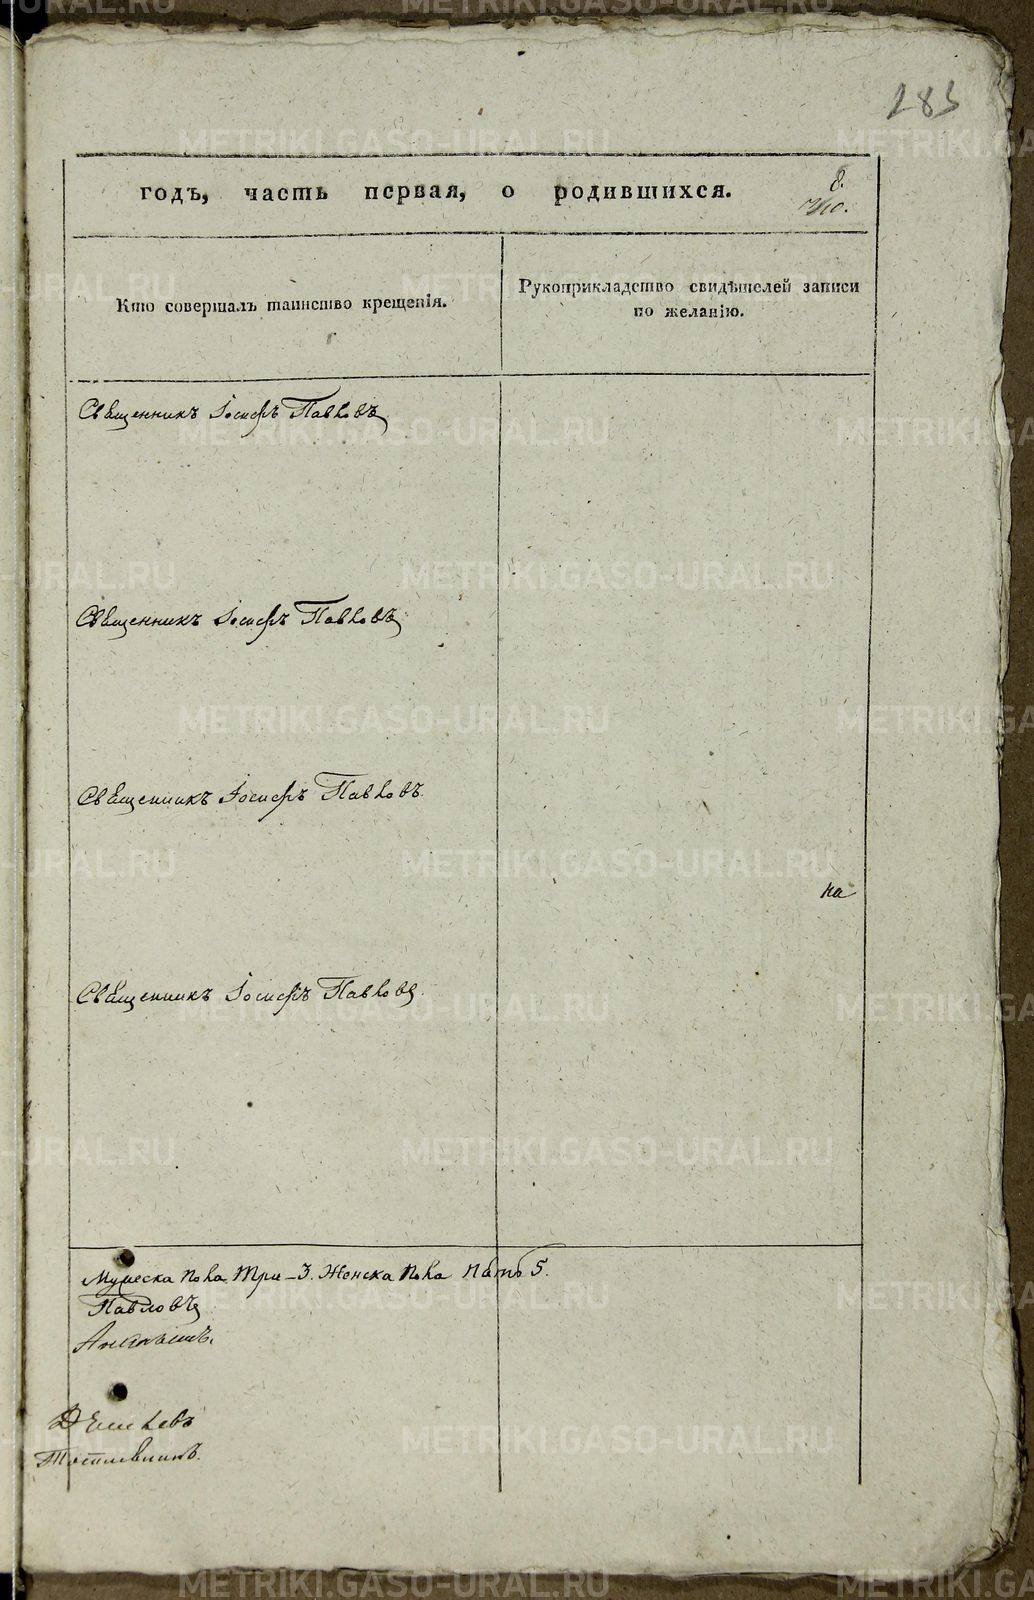 283
годъ, часть первая, о родившихся.
8.
Кто совершалъ таинство крещенія.
Рукоприкладство свидѣтелей записи
по желанію.
Священникъ Іосифъ Павловъ
Священникъ Іосифъ Павловъ
Священникъ Іосифъ Павловъ
на
Священникъ Іосифъ Павловъ
Мужеска пола три - 3. Женска пола пять 5.
Павловъ
METRIKI.GASO-URAL.RU